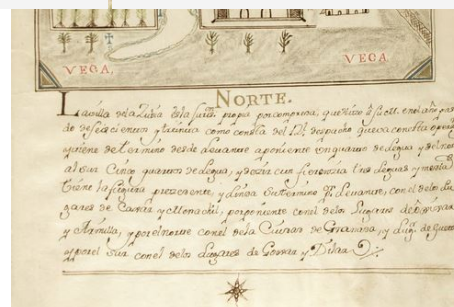 VEGA.
VEGA.
NORTE.
La villa dela Zubia es la Jurisd. propia por compra, que hizo á su M. en el año pasa
do de seiscientos y treinta como consta del Despacho que va con esta
y tiene de termino desde levante a poniente un quarto de legua y del norte
al sur Cinco quartos de legua, y de circunferenzia tres leguas y media
tiene la figura presente, y linda su termino por levante, con el de los Lu
gares de Caxar y Monachil, por poniente con el delos Lugares de
y Armilla, y por el norte con el dela Ciudad de Granada, y Lug. de Huetor
y por el Sur con el delos Lugares de Goxar y Dilar